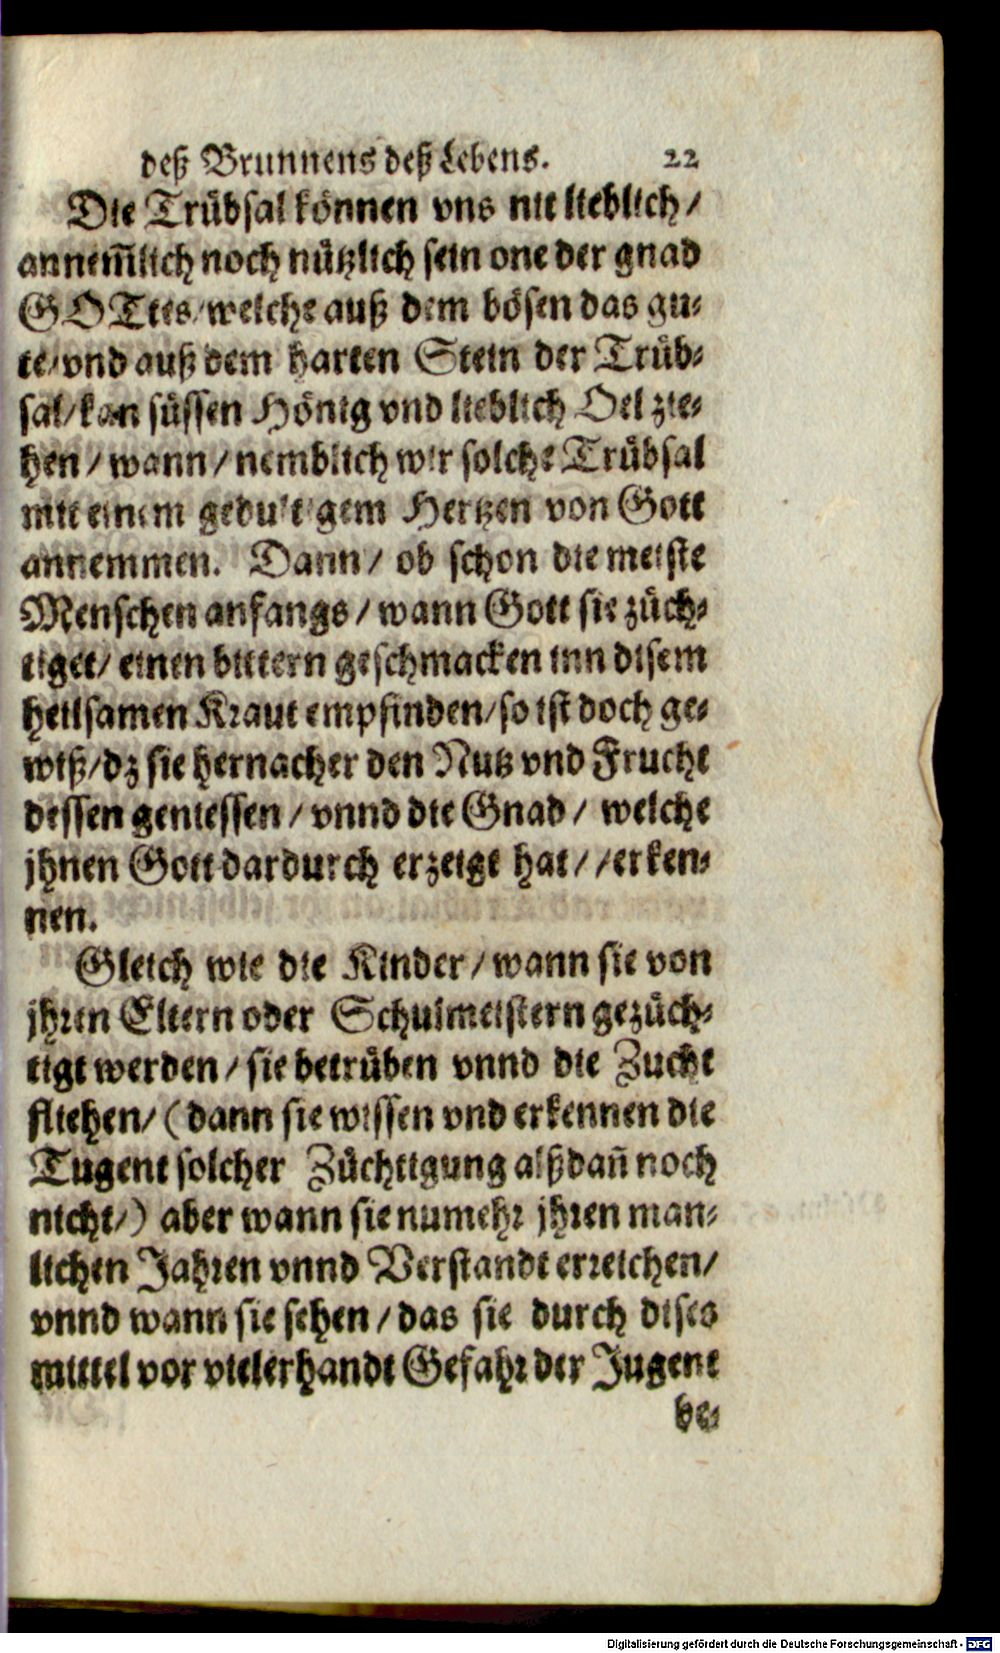 deß Brunnens deß Lebens. 22
Die Trübsal können vns nit lieblich/
annem̃lich noch nützlich sein one der gnad
GOTtes/welche auß dem bösen das gu-
te/vnd auß dem harten Stein der Trüb-
sal/kan süssen Hönig vnd lieblich Oel zie-
hen/wann/nemblich wir solche Trübsal
mit einem gedultigem Hertzen von Gott
annemmen. Dann/ ob schon die meiste
Menschen anfangs/wann Gott sie züch-
tiget/ einen bittern geschmacken inn disem
heilsamen Kraut empfinden/so ist doch ge-
wiß/dz sie hernacher den Nutz vnd Frucht
dessen geniessen/vnnd die Gnad/ welche
jhnen Gott dardurch erzeigt hat//erken-
nen.
Gleich wie die Kinder/wann sie von
jhren Eltern oder Schulmeistern gezüch-
tigt werden/sie betrüben vnnd die Zucht
fliehen/(dann sie wissen vnd erkennen die
Tugent solcher Züchtigung alßdañ noch
nicht/) aber wann sie numehr jhren man-
lichen Jahren vnnd Verstandt erreichen/
vnnd wann sie sehen/das sie durch dises
mittel vor vielerhandt Gefahr der Jugent
be-
Digitalisierung gefördert durch die Deutsche Forschungsgemeinschaft - DFG